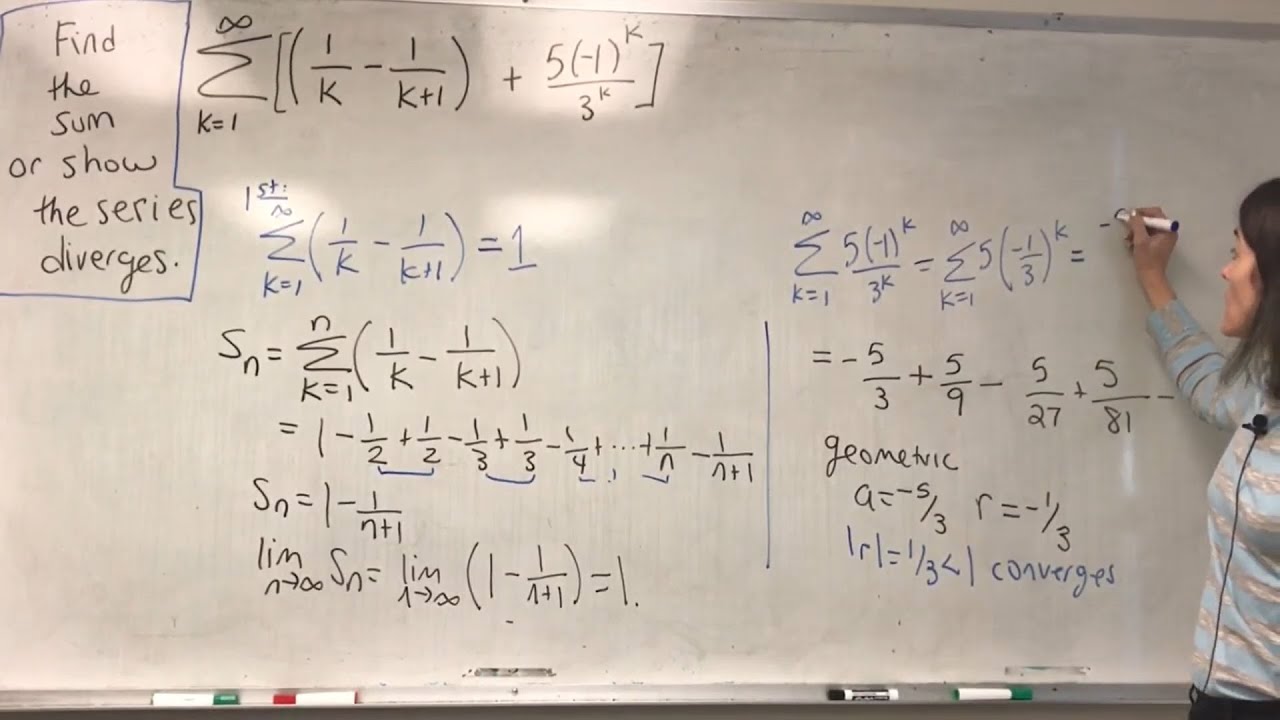 Find
the
sum
or show
the series
diverges.
∞
∑ [(1/k − 1/(k+1)) + 5(-1)^k/3^k]
k=1
1st:
∞
∑ (1/k − 1/(k+1)) = 1
k=1
Sn = ∑_{k=1}^{n} (1/k − 1/(k+1))
= 1 − 1/2 + 1/2 − 1/3 + 1/3 − 1/4 + ... + 1/n − 1/(n+1)
Sn = 1 − 1/(n+1)
lim_{n→∞} Sn = lim_{n→∞} (1 − 1/(n+1)) = 1.
∑_{k=1}^{∞} 5(-1)^k/3^k = ∑_{k=1}^{∞} 5(-1/3)^k = −
= − 5/3 + 5/9 − 5/27 + 5/81 −
geometric
a = −5/3 r = −1/3
|r| = 1/3 < 1 converges